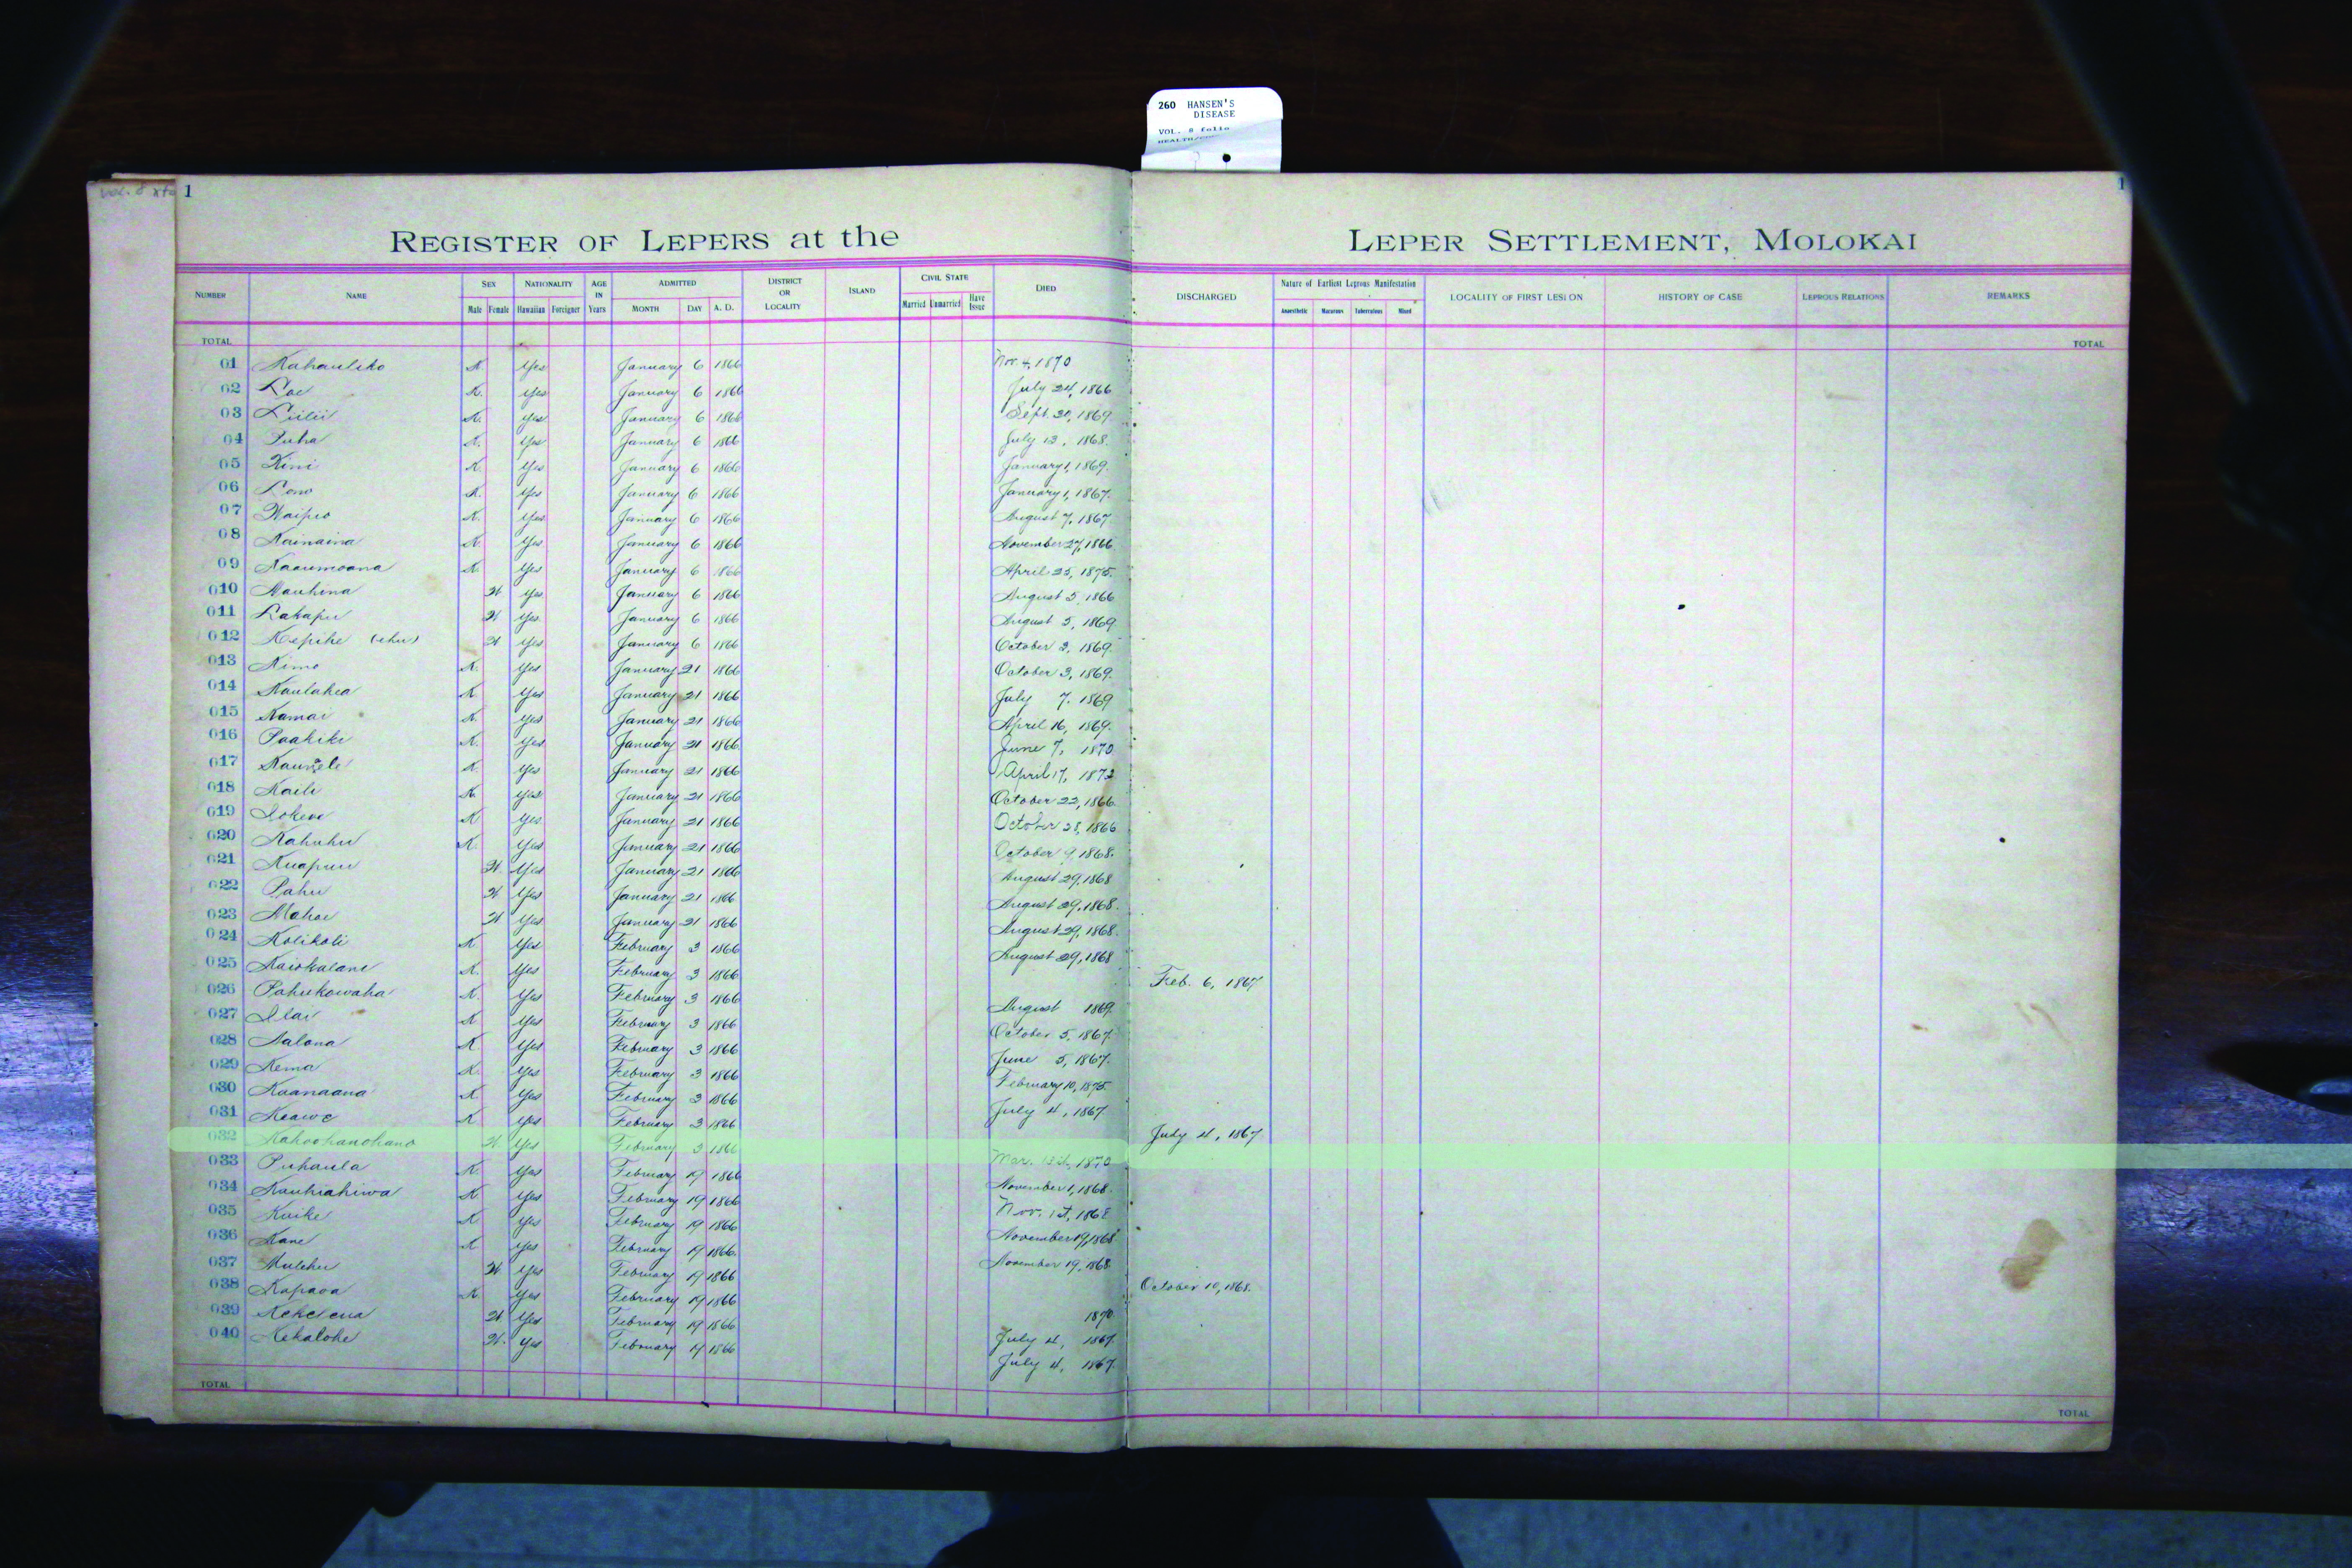 260 HANSEN'S
DISEASE
VOL. 8 folio
1
1
REGISTER OF LEPERS at the LEPER SETTLEMENT, MOLOKAI
NUMBER NAME SEX NATIONALITY AGE IN Years ADMITTED DISTRICT OR LOCALITY ISLAND CIVIL STATE DIED DISCHARGED Nature of Earliest Leprous Manifestation LOCALITY OF FIRST LESION HISTORY OF CASE LEPROUS RELATIONS REMARKS
Male Female Hawaiian Foreigner MONTH DAY A. D. Married Unmarried Have Issue Anaesthetic Macurous Tuberculous Mixed
TOTAL TOTAL
01 Kahauliko K. Yes January 6 1866 Nov. 4, 1870
02 Loe K. Yes January 6 1866 July 24, 1866
03 Liilii K. Yes January 6 1866 Sept. 20, 1869
04 Puha K. Yes January 6 1866 July 13, 1868
05 Kini K. Yes January 6 1866 January 1, 1869.
06 Lono K. Yes January 6 1866 January 1, 1867.
07 Waipio K. Yes January 6 1866 August 7, 1867
08 Kainaina K. Yes January 6 1866 November 27, 1866
09 Kaaumoana K. Yes January 6 1866 April 25, 1875.
010 Mauhina W Yes January 6 1866 August 5, 1866
011 Lakapu W Yes January 6 1866 August 5, 1869
012 Kepihe (ehu) W Yes January 6 1866 October 3, 1869.
013 Kimo K. Yes January 21 1866 October 3, 1869.
014 Kaulahea K Yes January 21 1866 July 7, 1869
015 Kamai K. Yes January 21 1866 April 16, 1869.
016 Paakiki K. Yes January 21 1866 June 7, 1870
017 K. Yes January 21 1866 April 17, 1872
018 Kaili K. Yes January 21 1866 October 22, 1866.
019 Iokewe K Yes January 21 1866 October 28, 1866
020 Kahuhu K. Yes January 21 1866 October 9, 1868.
021 Kuapuu W. Yes January 21 1866 August 29, 1868
022 Pahu W. Yes January 21 1866 August 29, 1868.
023 Mahoe W Yes January 21 1866 August 29, 1868.
024 Kolikoli K Yes February 3 1866 August 29, 1868
025 Kaiokalani K. Yes February 3 1866 Feb. 6, 1867
026 Pahukowaha K. Yes February 3 1866 August 1869
027 Ilai K Yes February 3 1866 October 5, 1867.
028 Aalona K Yes February 3 1866 June 5, 1867.
029 Kema K. Yes February 3 1866 February 10, 1875
030 Kaanaana K Yes February 3 1866 July 4, 1867
031 Keawe K Yes February 3 1866 July 4, 1867
032 Kahoohanohano W Yes February 3 1866 Mar. 1870
033 Puhaula K. Yes February 19 1866 November 1, 1868.
034 Kauhiahiwa K Yes February 19 1866 Nov. 1st, 1868
035 Kuike K Yes February 19 1866 November 19, 1868
036 Kane K Yes February 19 1866. November 19, 1868
037 Mulehu W. Yes February 19 1866 October 10, 1868.
038 Kapaoa K. Yes February 19 1866 1870
039 W. Yes February 19 1866 July 4, 1867.
040 Kekalohe W. Yes February 19 1866 July 4, 1867.
TOTAL TOTAL